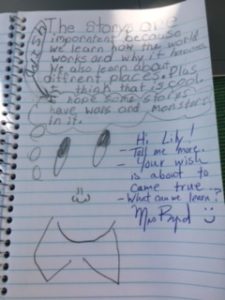 The storys are
imporntent because
we learn how the world
works and why it
We also learn about
diffrent places. Plus
I think that is cool.
I hope some stories
have wars and monsters
in it.
Hi Lily!
- Tell me more.
- Your wish
is about to
came true.
- What can we learn?
Mrs